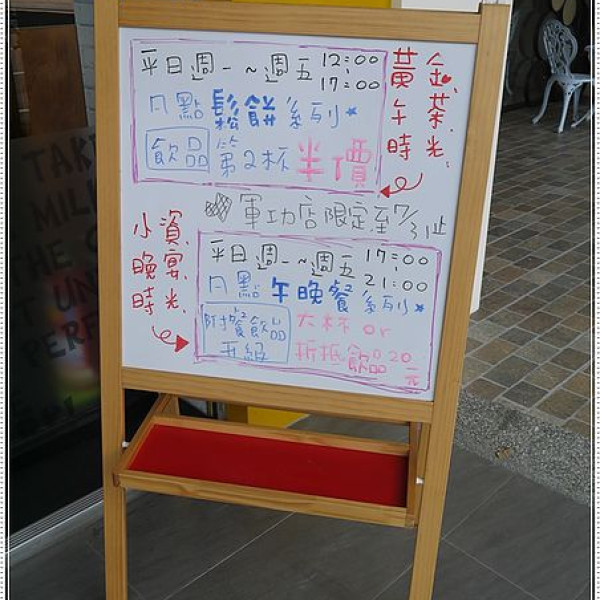 平日週一~週五 12:00
17:00
凡點鬆餅系列*
飲品 第2杯半價
黃金
午茶
時光
軍功店限定至7/31止
小資
晚宴
時光
平日週一~週五 17:00
21:00
凡點午晚餐系列*
附餐飲品
升級
大杯 or
折抵飲品20元
TAKE
MIL
THE C
T UN
PERF